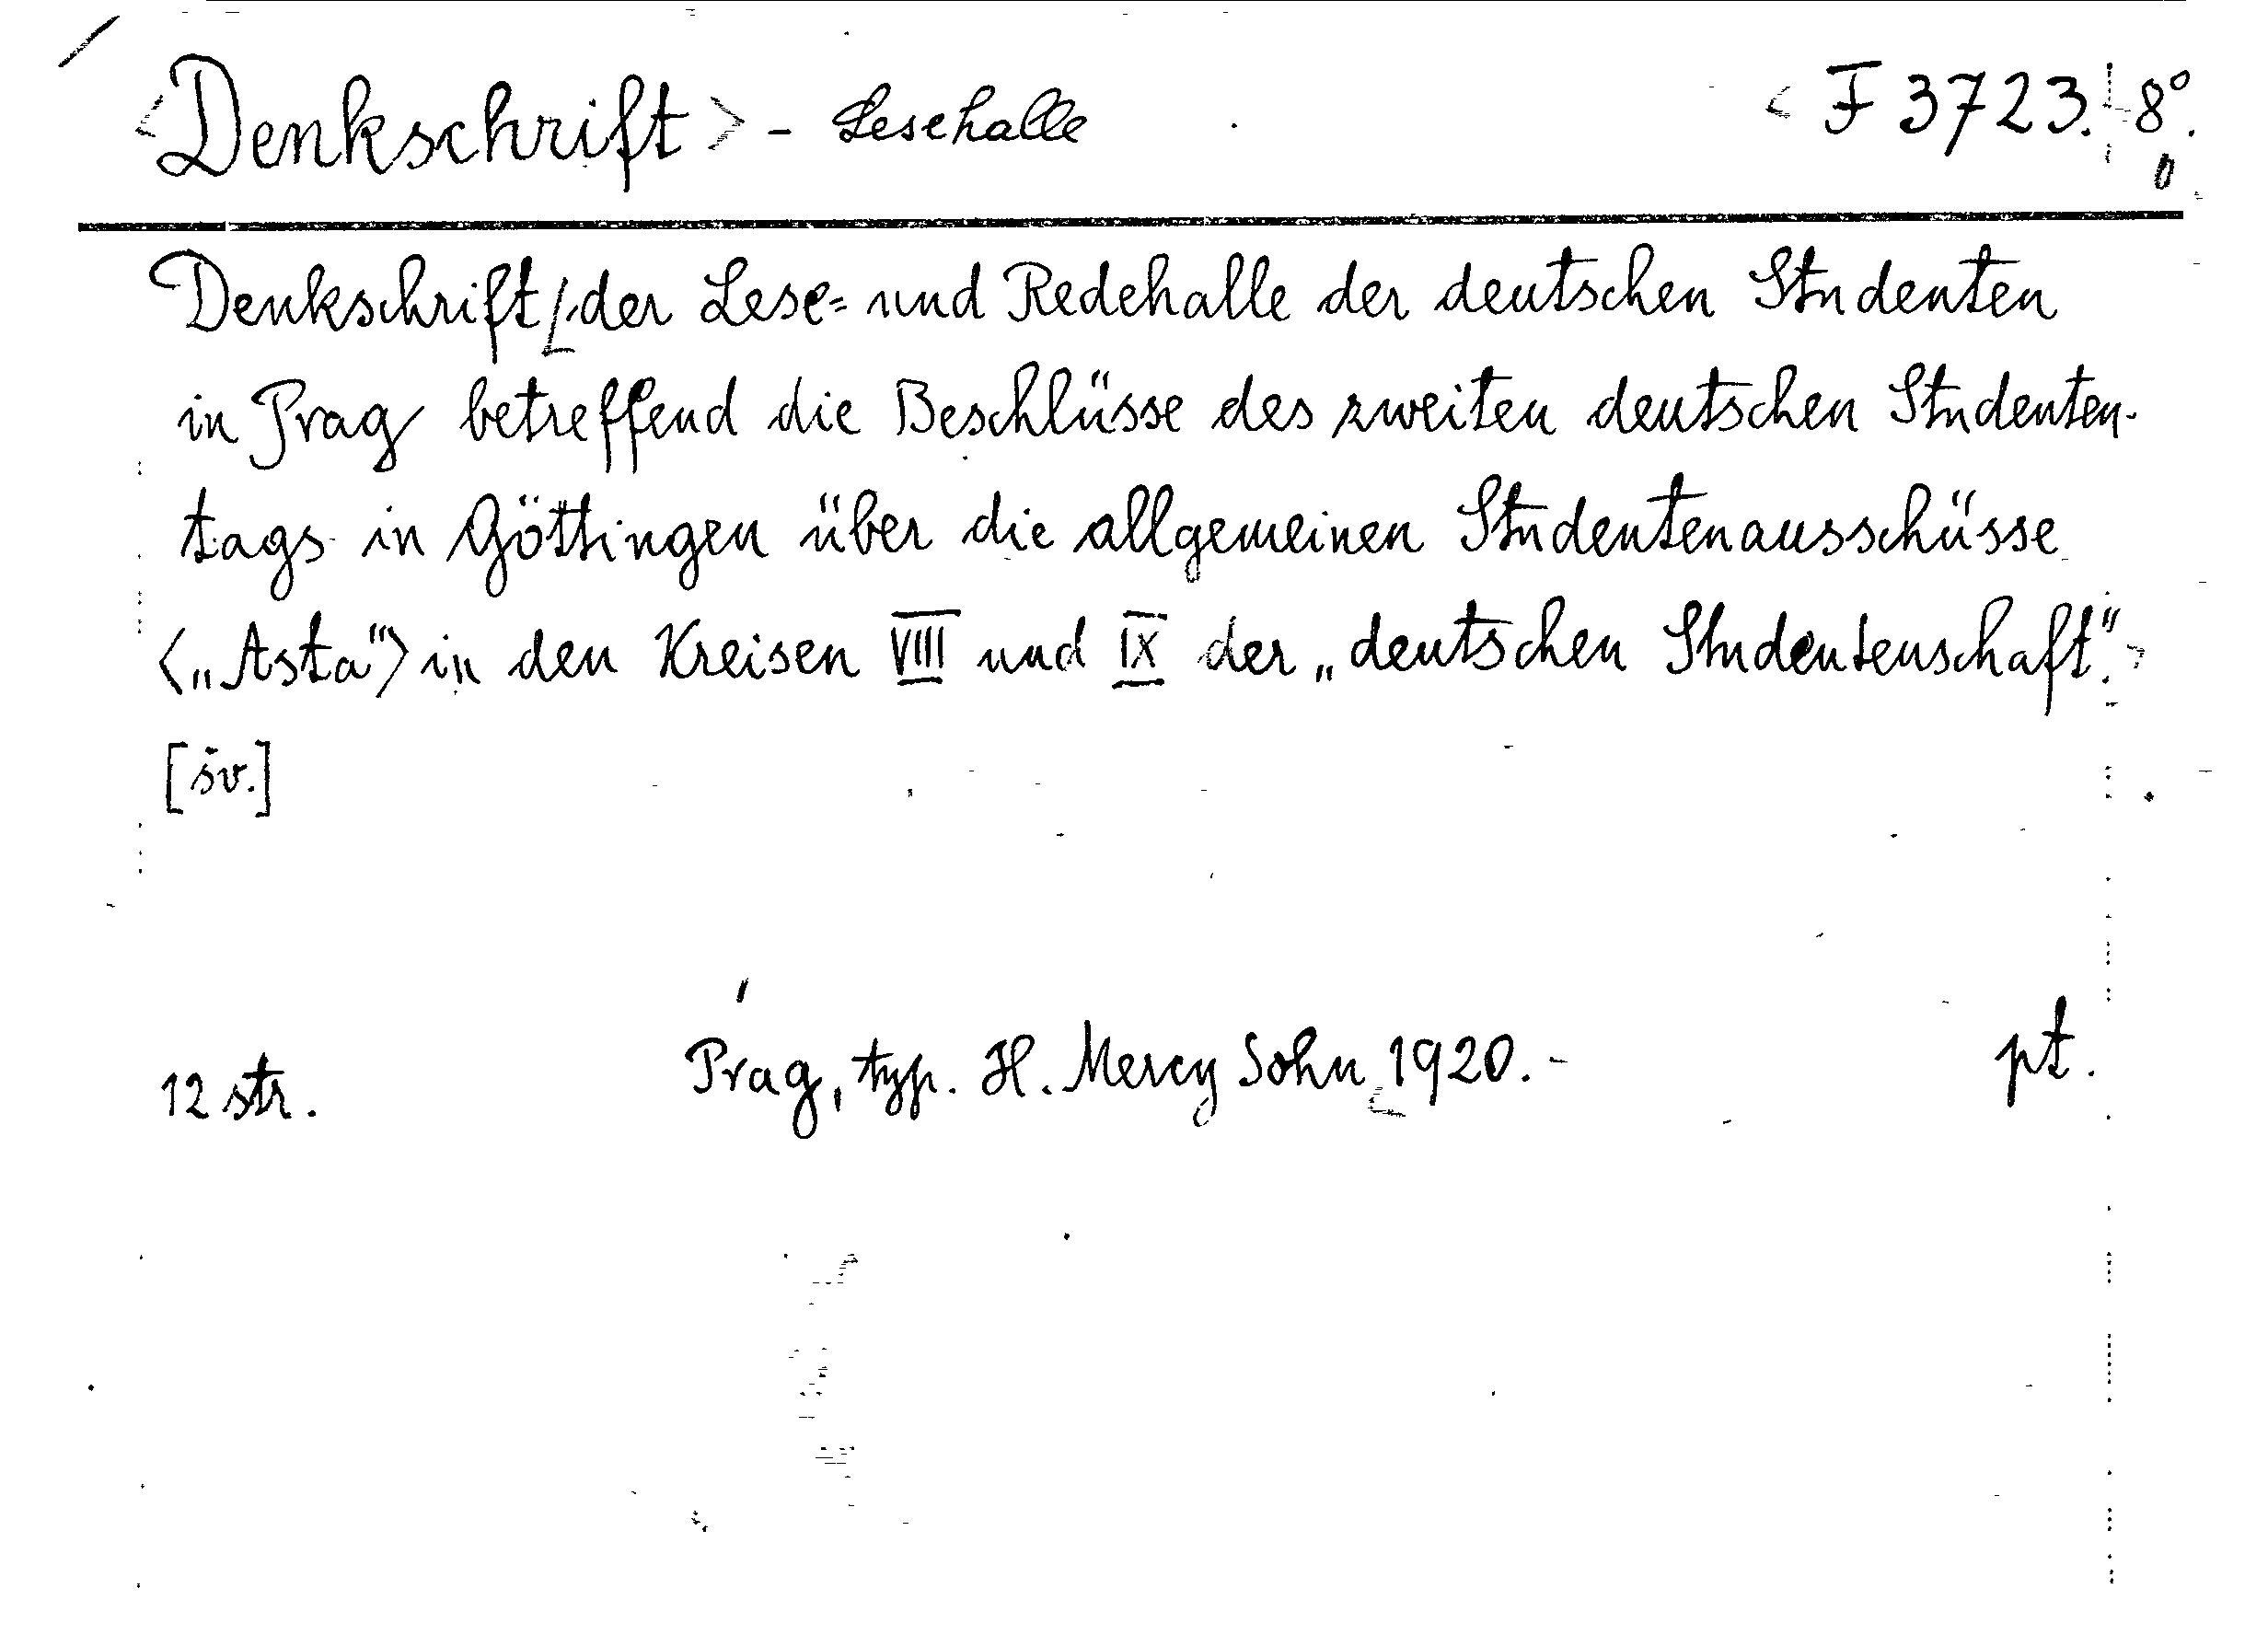 <Denkschrift> - Lesehalle F 3723. 8°.
Denkschrift der Lese= und Redehalle der deutschen Studenten
in Prag betreffend die Beschlüsse des zweiten deutschen Studenten-
tags in Göttingen über die allgemeinen Studentenausschüsse
<„Asta“> in den Kreisen VIII und IX der „deutschen Studentenschaft“.
[šv.]
12 str. Prag, typ. H. Mercy Sohn 1920.- pt.